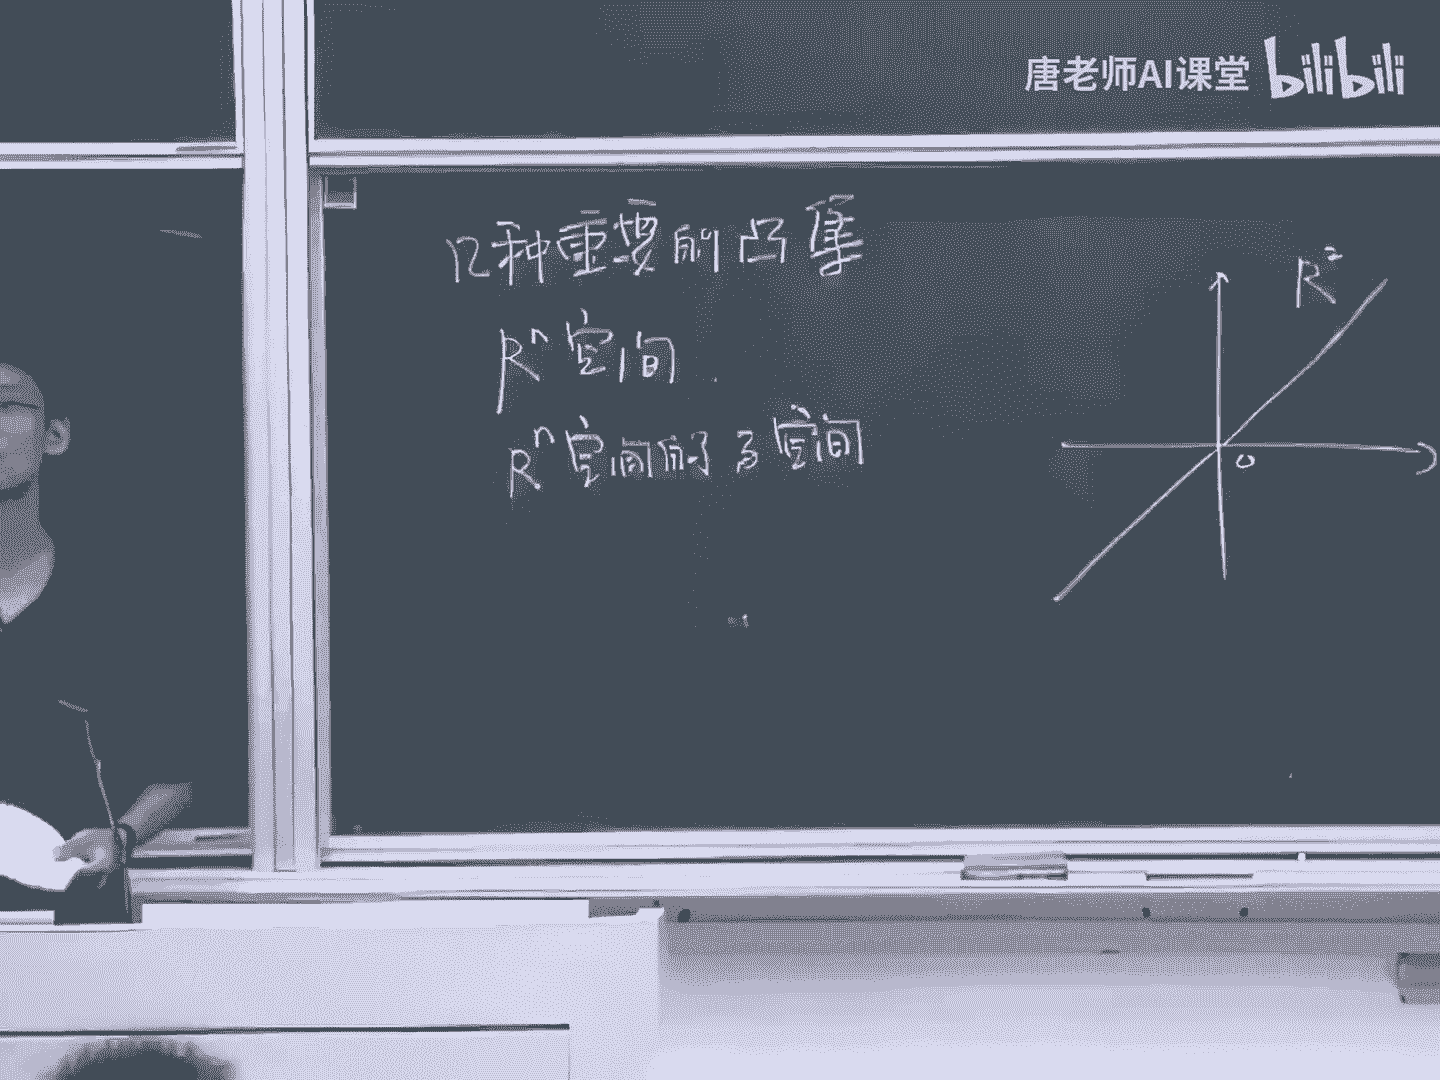 唐老师AI课堂 bilibili
几种重要的凸集
Rⁿ空间
Rⁿ空间的子空间
R²
O